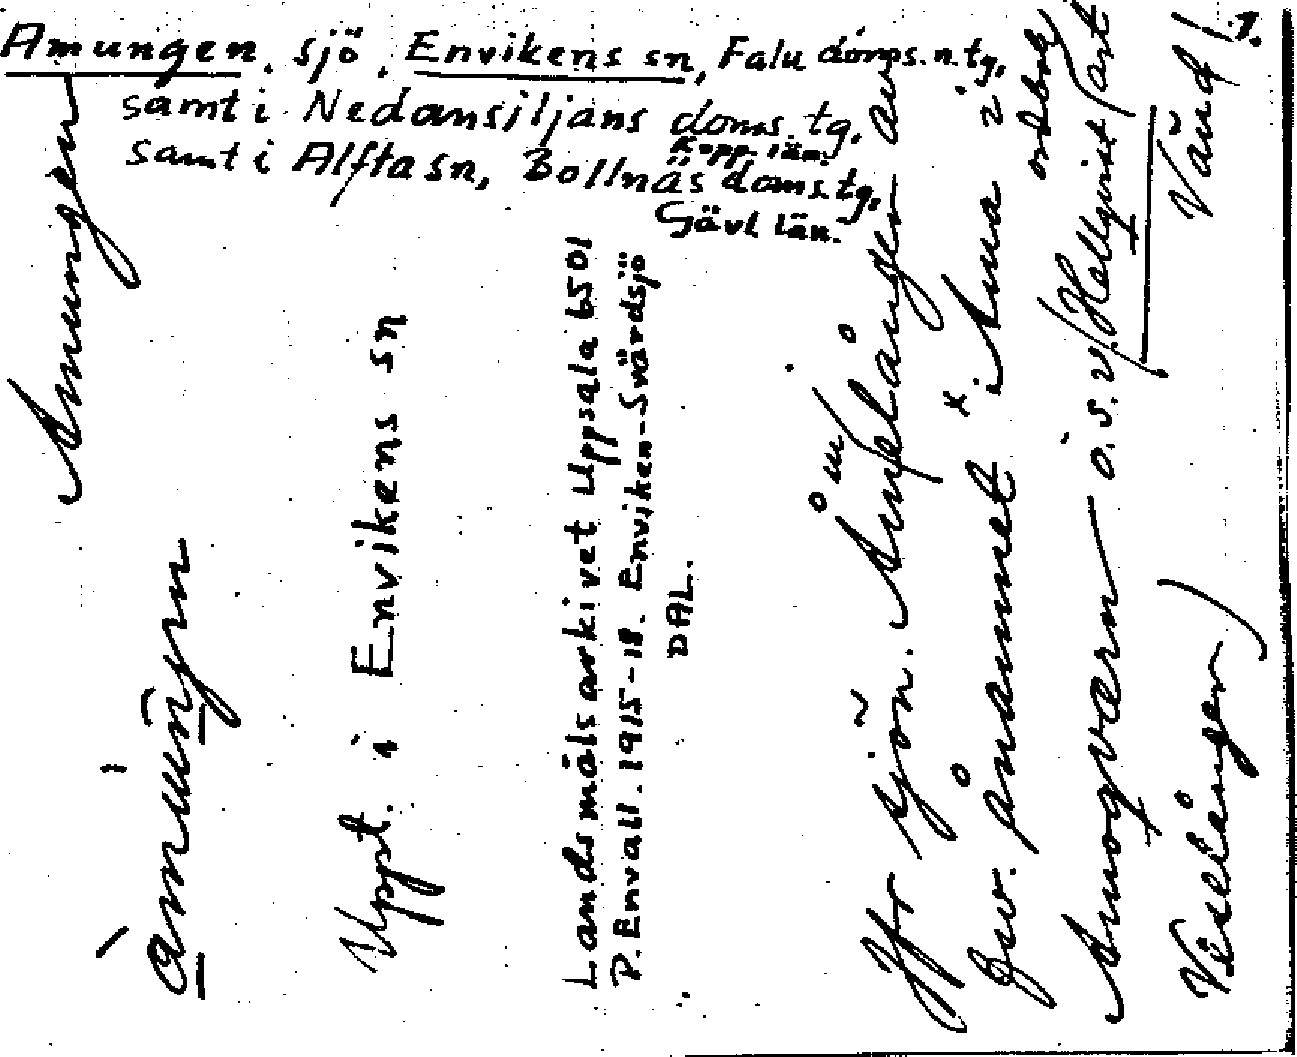 1.
Amungen, sjö, Envikens sn, Falu doms. n. tg,
samt i Nedansiljans doms. tg,
Kopp. län.
samt i Alfta sn, Bollnäs doms. tg,
Gävl län.
Amungen
amuŋen
Uppt. i Envikens sn
Landsmålsarkivet Uppsala 6501
P. Envall. 1915-18. Enviken-Svärdsjö
DAL.
Jfr sjön. Åmelången av
fsv. ånamnet × Ama i
Amoqværn o. s. v. (Hellqvist
ordbok
Vällången)
Vänd!